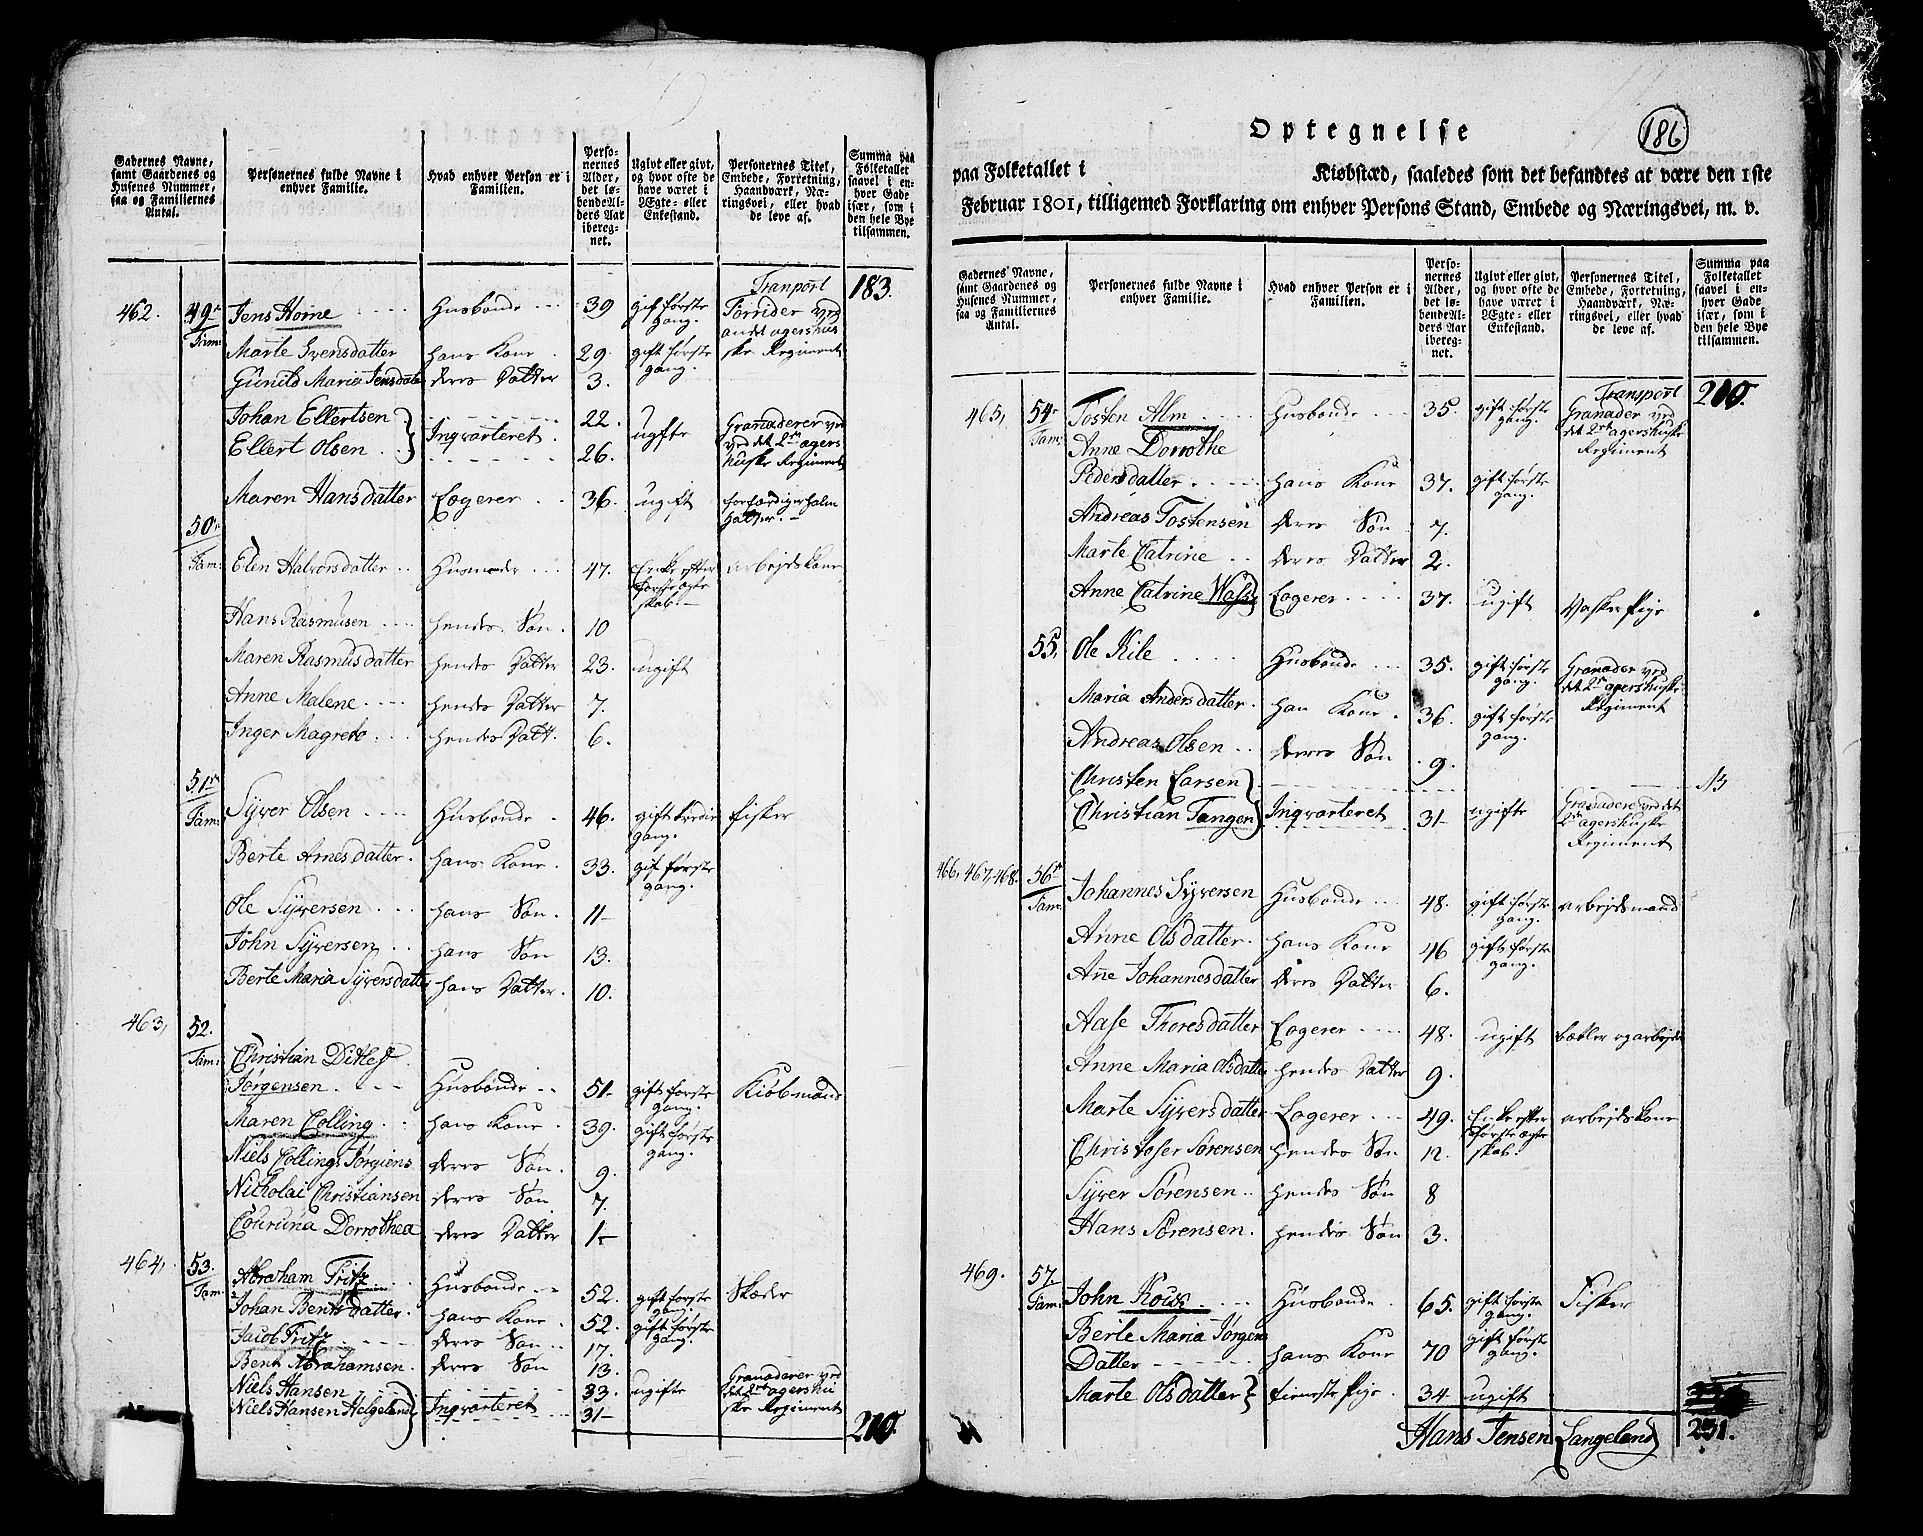 Gadernes Navne, samt Gaardenes og Husenes Nummer, saa og Familiernes Antal.
Personernes fulde Navne i enhver Familie.
Hvad enhver Person er i Familien.
Personernes Alder, det løbende Alders Aar iberegnet.
Ugivt eller givt, og hvor ofte de have været i Ægte- eller Enkestand.
Personernes Titel, Embede, Forretning, Haandværk, Næringsvei, eller hvad de leve af.
Summa paa Folketallet saavel i enhver Gade især, som i den hele Bye tilsammen.
Tranport 183.
462. 49de Fam: Jens Horne Husbonde 39 gift første gang. ved andet agershuske Regiment
Marte Svensdatter hans Kone 29. gift første gang.
Gunild Maria Jensdatter deres Datter 3.
Johan Ellertsen } Inqvarteret 22. ugifte Granaderer ved
Ellert Olsen } 26. ved det 2den agershuske Regiment
Maren Hansdatter Logerer 36. ugift forfærdiger halm Hatter.
50de Fam: Elen Halvorsdatter Husmoder 47. Enke efter første ægteskab. arbejdskone
Hans Rasmusen hendes Søn. 10
Maren Rasmusdatter hendes Datter 23. ugift
Anne Malene hendes Datter 7.
Inger Magrete hendes Datt. 6.
51de Fam: Syver Olsen Husbonde 46. gift tredie gang. fisker
Berte Arnesdatter. hans Kone 33. gift første gang.
Ole Syversen hans Søn. 11
John Syversen hans Søn 13.
Berte Maria Syversdatter hans Datter. 10.
463, 52. Fam: Christian Ditlef
Jørgensen Husbonde 51 gift første gang. Kiøbmand
Maren Colling hans Kone 39. gift første gang.
Niels Collings Jørgiens deres Søn. 9.
Nicholai Christiansen deres Søn 7.
Dorrothea deres Datter 1
464, 53. Fam: Abraham Fritz Husbonde 52. gift første gang Skoder
Johan Bentsdatter. hans Kone 52. gift første gang.
Jacob Fritz deres Søn 17.
Bent Abrahamsen. deres Søn 13.
Niels Hansen } Inqvarteret 33. ugifte Granaderer ved det 2den agershuske Regiment
Niels Hansen Helgeland } 31
210.
186
Optegnelse
paa Folketallet i Kiøbstæd, saaledes som det befandtes at være den 1ste
Februar 1801, tilligemed Forklaring om enhver Persons Stand, Embede og Næringsvei, m. v.
Gadernes Navne, samt Gaardenes og Husenes Nummer, saa og Familiernes Antal.
Personernes fulde Navne i enhver Familie.
Hvad enhver Person er i Familien.
Personernes Alder, det løbende Alders Aar iberegnet.
Ugivt eller givt, og hvor ofte de have været i Ægte- eller Enkestand.
Personernes Titel, Embede, Forretning, Haandværk, Næringsvei, eller hvad de leve af.
Summa paa Folketallet saavel i enhver Gade især, som i den hele Bye tilsammen.
Transport 210.
465, 54de Fam: Tosten Alm Husbonde 35. gift første gang. Granader ved det 2det agershuske Regiment
Anne Dorrothe
Pedersdatter hans Kone 37. gift første gang.
Andreas Tostensen deres Søn 7.
Marte Catrine deres Datter 2.
Anne Catrine Logerer 37. ugift Vasker Pige
55, Ole Kile Husbonde 35. gift første gang. Granader ved det 2den agershuske Regiment
Maria Andersdatter. han Kone 36. gift første gang.
Andreas Olsen deres Søn 9.
Christen Larsen }
Christian Tangen } Inqvarteret 31 ugifte Granadere ved det 2den agershuske Regiment
466, 467, 468. 56de Fam: Johannes Syversen Husbonde 48. gift første gang. arbejdsmand
Anne Olsdatter. hans Kone 46 gift første gang.
Ane Johannesdatter deres Datter 6.
Aase Thoresdatter Logerer 48. ugift betler og arbejde
Anne Maria Olsdatter hendes Datter 9.
Marte Syversdatter Logerer 49. Enke efter første ægteskab. arbejdskone
Christofer Sørensen hendes Søn 12.
Syver Sørensen hendes Søn 8
Hans Sørensen. hendes Søn 3.
469. 57. Fam: John Husbonde 65. gift første gang. Fisker
Berte Maria Jørgens
Datter hans Kone 70 gift første gang.
Marte Olsdatter } tieneste Pige 34 ugift
Hans Jensen Langeland 231.